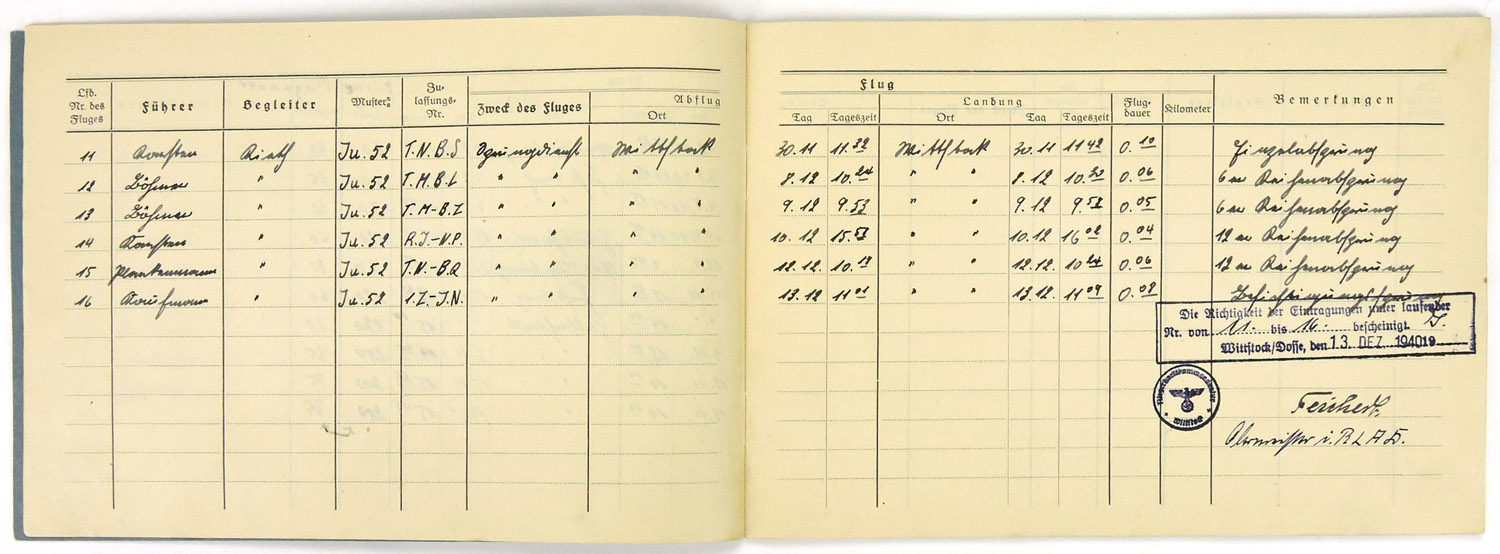 Flug
Lfd. Nr. des Fluges Führer Begleiter Muster Zulassungs-Nr. Zweck des Fluges Abflug Ort Tag Tageszeit Landung Ort Tag Tageszeit Flugdauer Kilometer Bemerkungen
11 Rieth Ju. 52 T.N.B.S Sprungdienst Wittstock 30.11 11.32 Wittstock 30.11 11 42 0.10 Einzelabsprung
12 Böhme " Ju. 52 T.M.B.L " " " " 8.12 10.24 " " 8.12 10.30 0.06 6er Reihenabsprung
13 Böhme " Ju. 52 T.M-B.I " " " " 9.12 9.53 " " 9.12 9.58 0.05 6er Reihenabsprung
14 " Ju. 52 R.J.-N.P. " " " " 10.12 15.58 " " 10.12 16 02 0.04 12er Reihenabsprung
15 Plankenmann " Ju. 52 T.N-B.Q " " " " 12.12. 10.18 " " 12.12. 10 24 0.06 12er Reihenabsprung
16 Kaufmann " Ju. 52 1.Z-J.N. " " " " 13.12 11 01 " " 13.12. 11 09 0.08 Besichtigungssprung
Die Richtigkeit der Eintragungen unter laufender
Nr. von 11. bis 16. bescheinigt.
Wittstock/Dosse, den 13. DEZ. 1940 19
Wittstock
Obermeister i. R L A D.